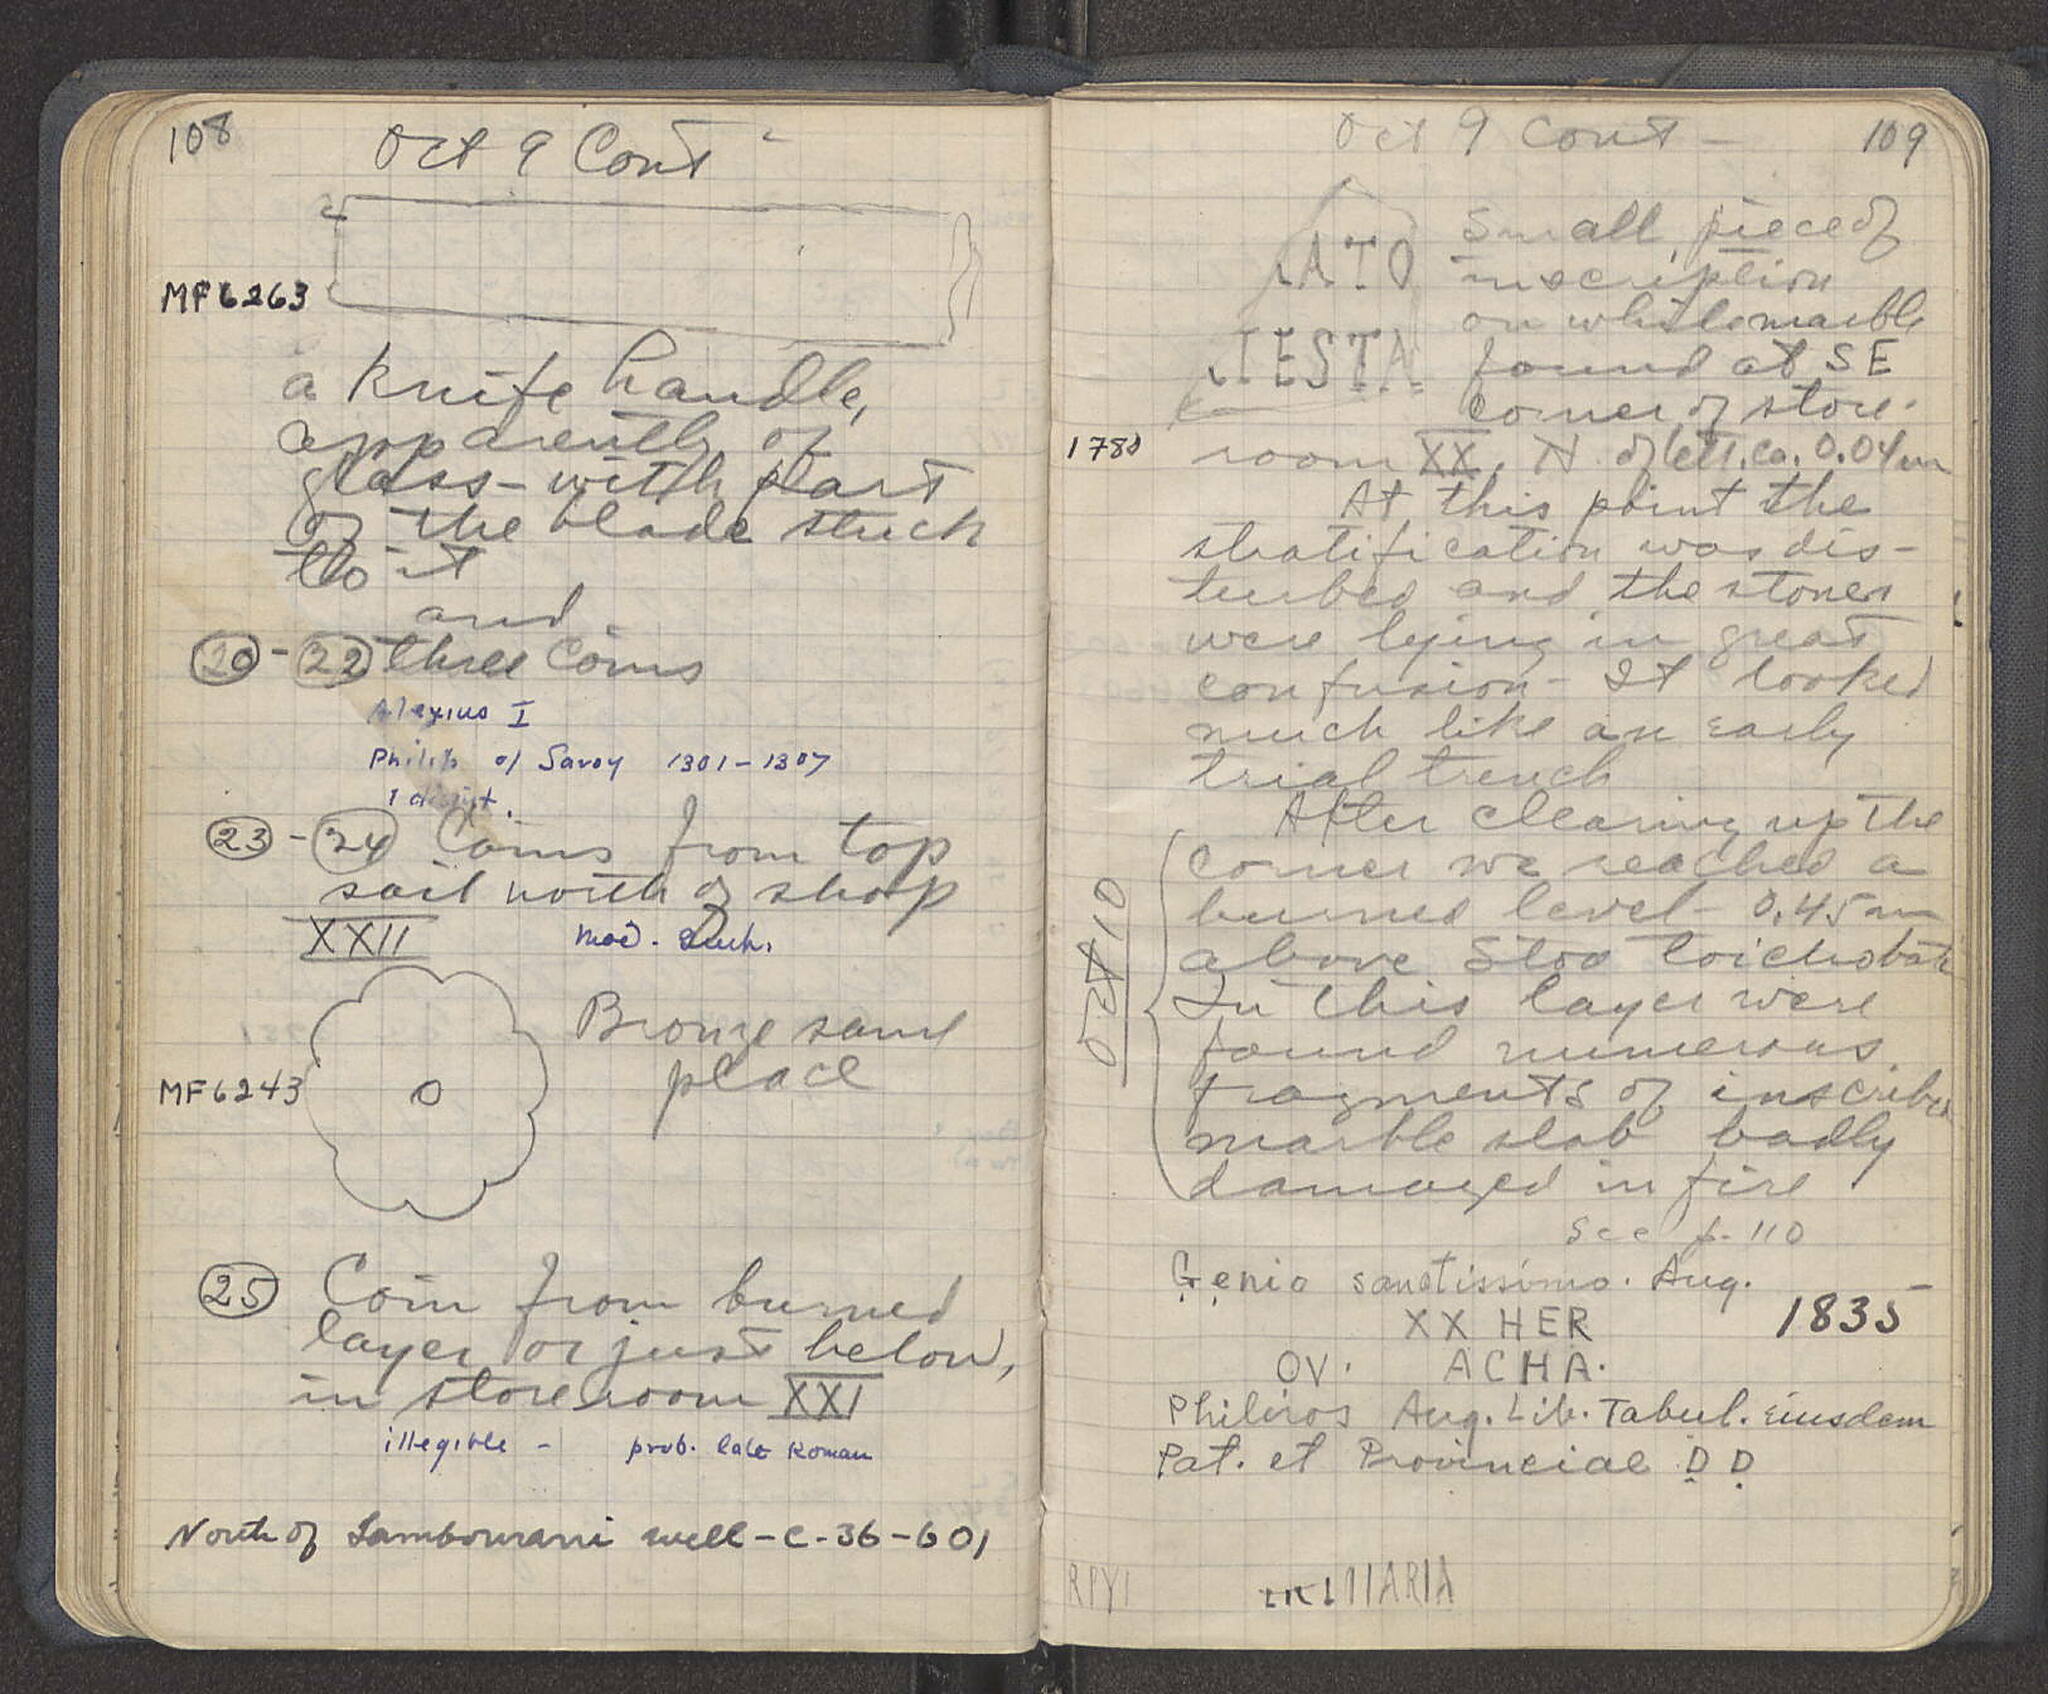 108
Oct 9 Cont -
MF 6263
a knife handle,
apparently of
glass - with part
of the blade stuck
to it
and
20 - 22 three Coins
Alexius I
Philip of Savoy 1301-1307
1 disint.
23 - 24 Coins from top
soil north of shop
XXII
mod.
MF 6243
Bronze same
place
25 Coin from burned
layer or just below,
in storeroom XXI
illegible - prob. late Roman
North of Lambourani well - C-36-601
Oct 9 Cont - 109
ATO
IESTA
Small piece of
inscription
on white marble
found at SE
corner of store-
1780
room XX. H of lett. ca. 0.04 m
At this point the
stratification was dis-
turbed and the stones
were lying in great
confusion - It looked
much like an early
trial trench
After clearing up the
corner we reached a
burned level - 0.45 m
above Stoa toichobate
In this layer were
found numerous
fragments of inscribed
marble slab badly
damaged in fire
Oct 10
See p. 110
Genio sanctissimo. Aug.
XX HER
1835
OV. ACHA.
Philiros Aug. Lib. Tabul. eiusdem
Pat. et Provinciae D D
RPYI
IIARIA